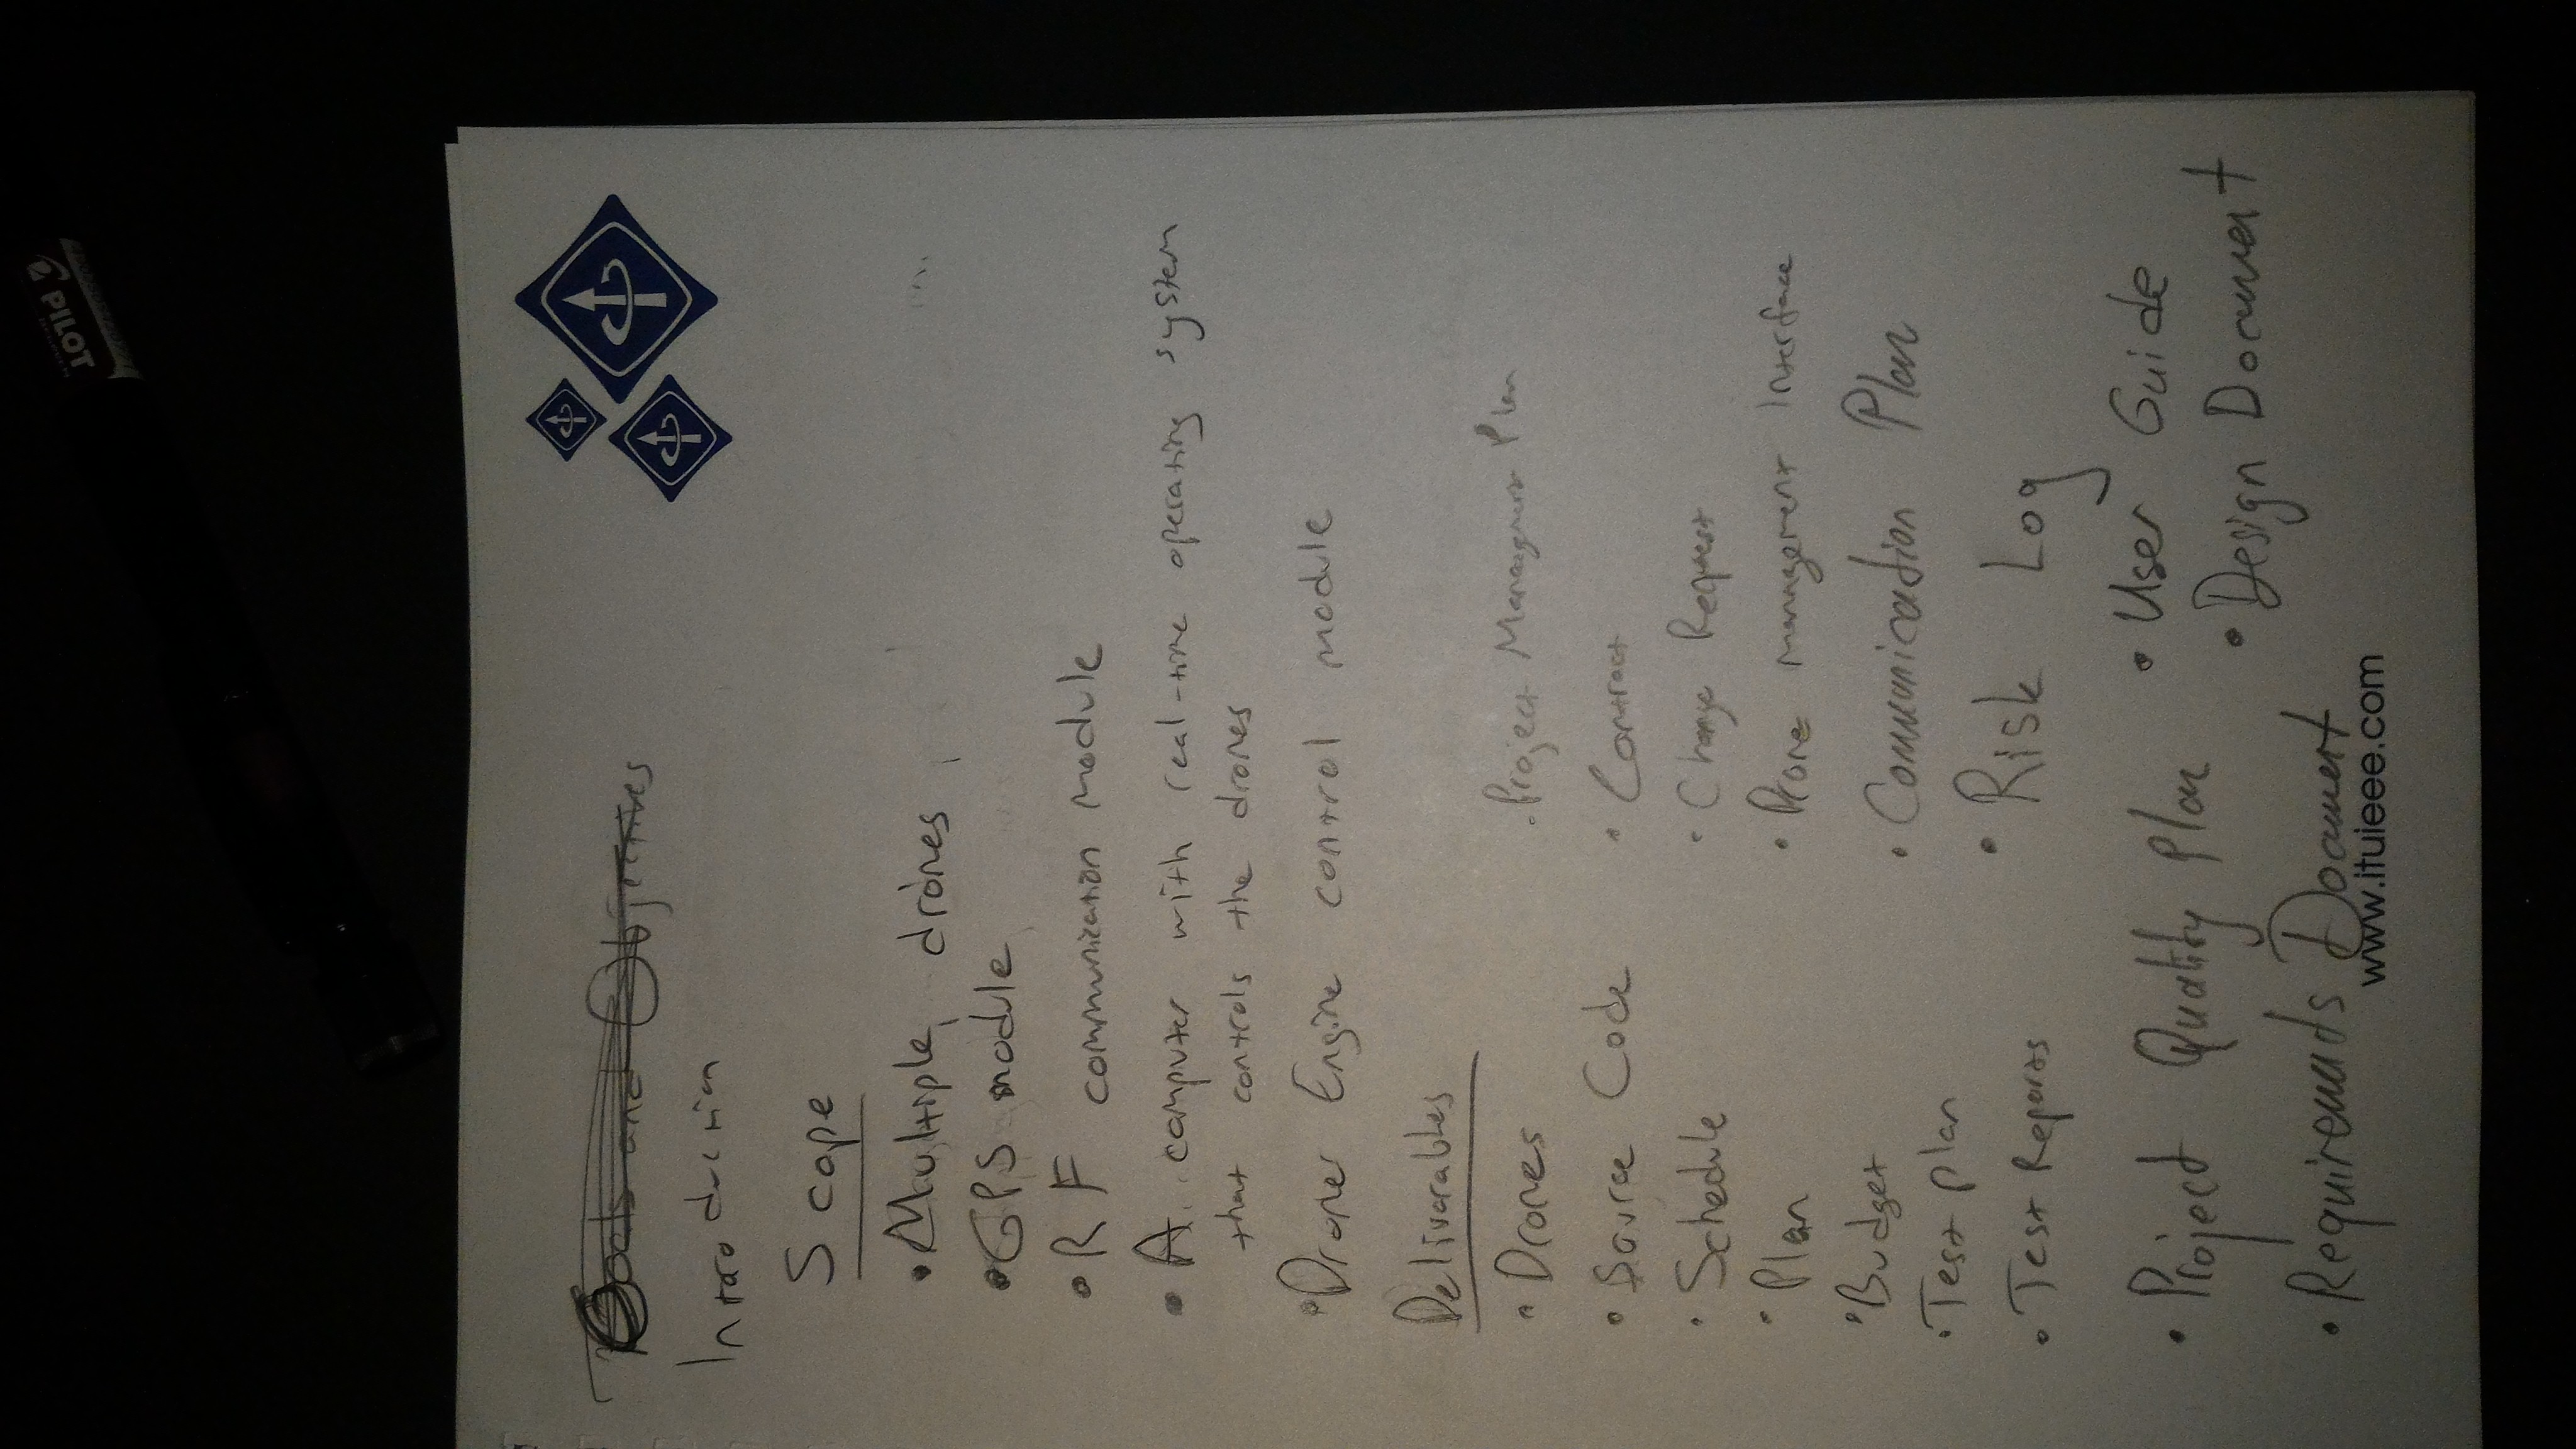 PILOT
Goals and Objectives
Introduction
Scope
• Multiple drones
• GPS module
• RF communication module
• A computer with real-time operating system
that controls the drones
• Drones Engine control module
Deliverables
• Drones
• Source Code
• Schedule
• Plan
• Budget
• Test plan
• Test Reports
• Project Quality Plan
• Requirements Document
• Project Managment Plan
• Contract
• Change Request
• Drone management Interface
• Communication Plan
• Risk Log
• User Guide
• Design Document
www.ituieee.com